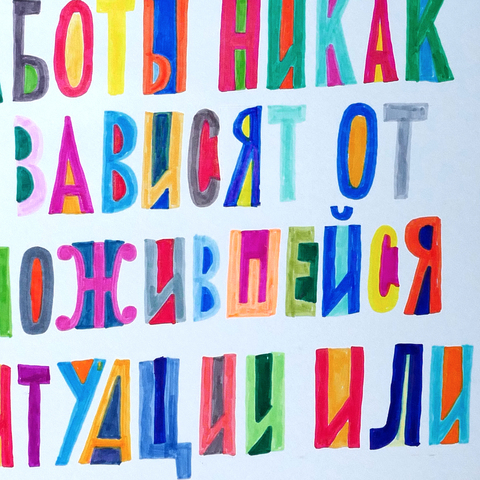 АБОТЫ НИКАК
ЗАВИСЯТ ОТ
ЛОЖИВШЕЙСЯ
ИТУАЦИИ ИЛИ